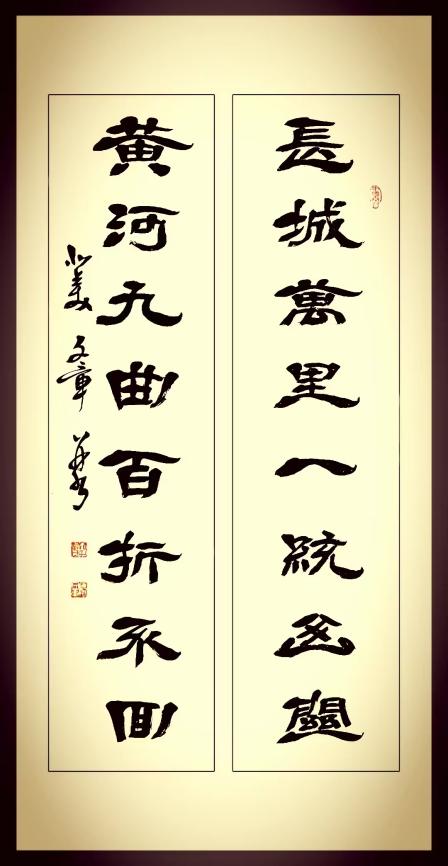 長城萬里一統幽關
黃河九曲百折不回
文章